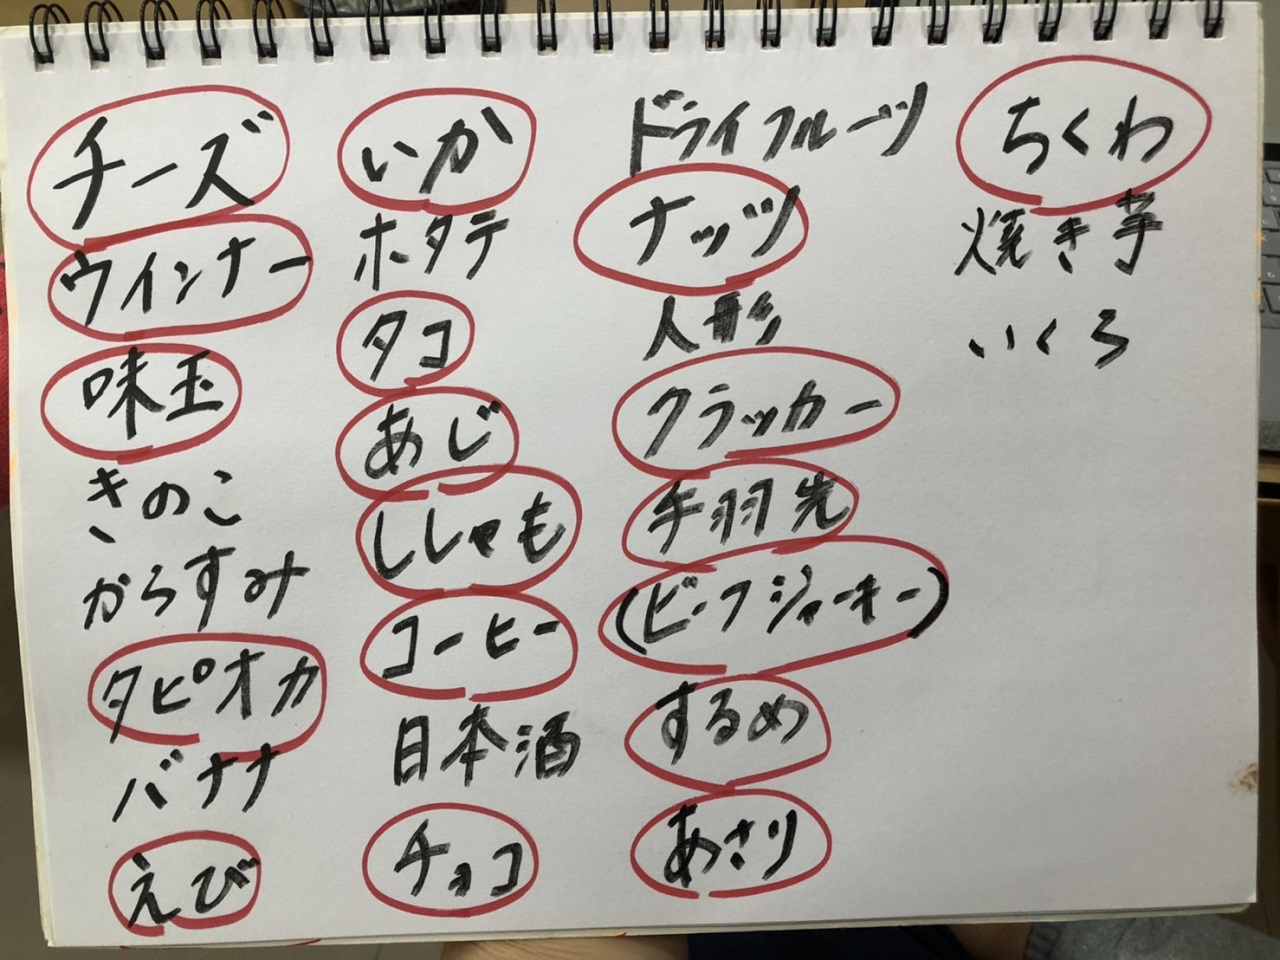 チーズ
ウインナー
味玉
きのこ
からすみ
タピオカ
バナナ
えび
いか
ホタテ
タコ
あじ
ししゃも
コーヒー
日本酒
チョコ
ドライフルーツ
ナッツ
人形
クラッカー
手羽先
(ビーフジャーキー)
するめ
あさり
ちくわ
焼き芋
いくら